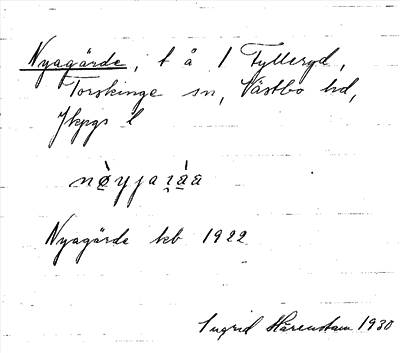 Nyagärde, t å 1 Fylleryd,
Torskinge sn, Västbo hd,
Jkpgs l
Nyagärde kb 1922
Ingrid Hårenstam 1930